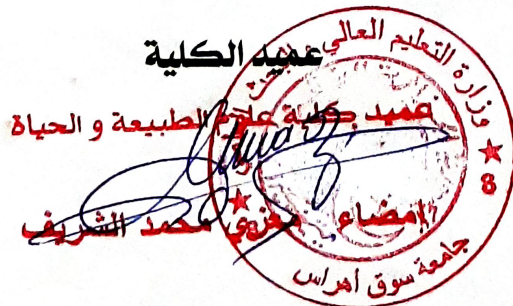 عميد الكلية
عميد كلية علوم الطبيعة و الحياة
إمضاء محمد الشريف
وزارة التعليم العالي
جامعة سوق أهراس
8